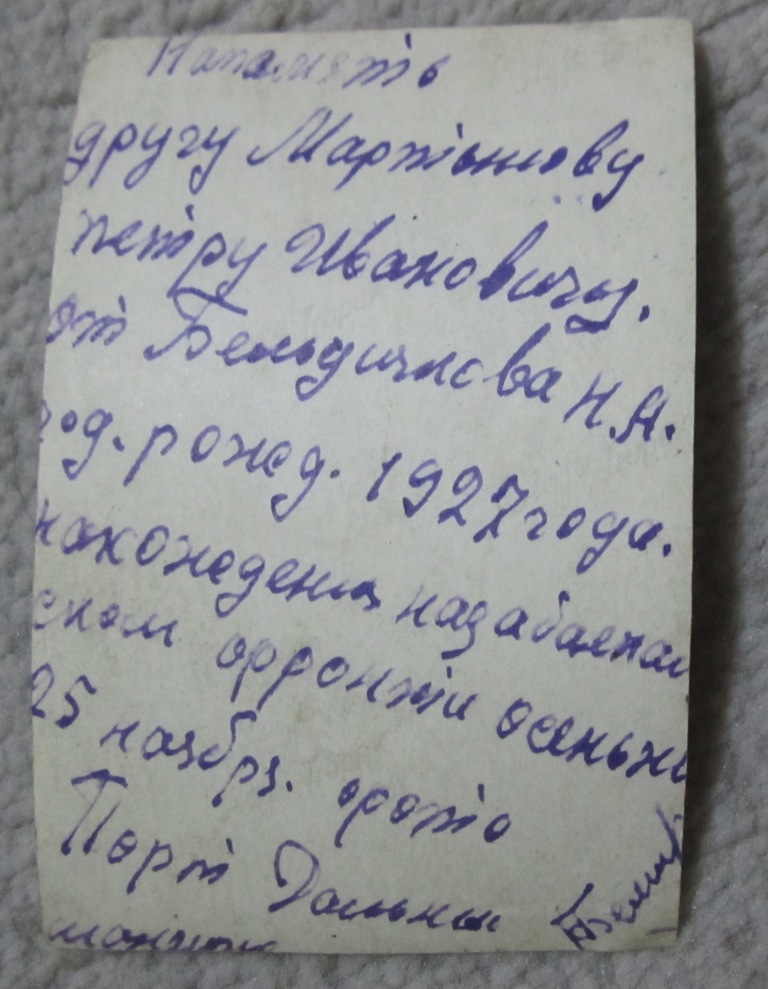 Напомять
другу Мартынову
петру Ивановичу.
от Бельдичкова Н.А.
год. рожд. 1927 года.
нахождения назабаекал
ском фронти осеньни
25 наября. фото
Порт Дальный